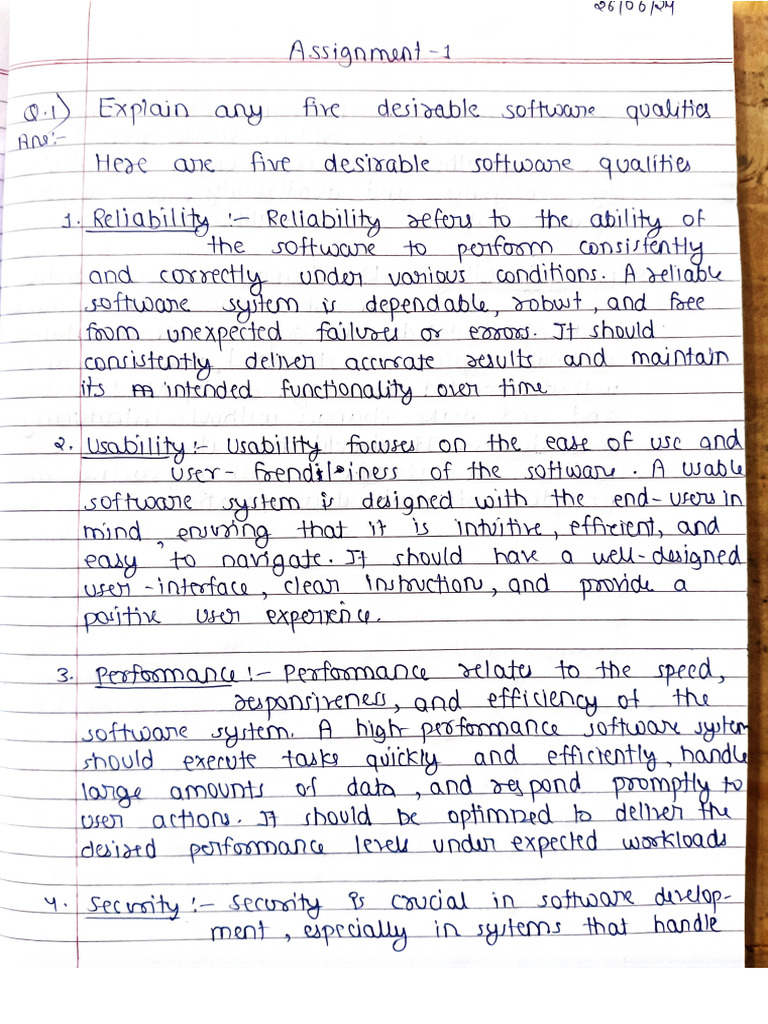 26/06/24
Assignment-1
Q.1) Explain any five desirable software qualities
Ans:-
Here are five desirable software qualities
1. Reliability :- Reliability refers to the ability of
the software to perform consistently
and correctly under various conditions. A reliable
software system is dependable, robust, and free
from unexpected failures or errors. It should
consistently deliver accurate results and maintain
its intended functionality over time
2. Usability :- Usability focuses on the ease of use and
user- frendliness of the software. A usable
software system is designed with the end-users in
mind, ensuring that it is intuitive, efficient, and
easy to navigate. It should have a well-designed
user-interface, clear instruction, and provide a
positive user experience.
3. Performance :- Performance relates to the speed,
responsiveness, and efficiency of the
software system. A high performance software system
should execute tasks quickly and efficiently, handle
large amounts of data, and respond promptly to
user actions. It should be optimized to deliver the
desired performance levels under expected workloads
4. Security :- Security is crucial in software develop-
ment, especially in systems that handle